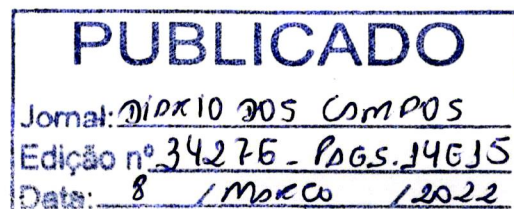 PUBLICADO
Jornal: DIÁRIO DOS CAMPOS
Edição nº 34276 - PAGS. 14 E 15
Data: 8 / MARCO / 2022